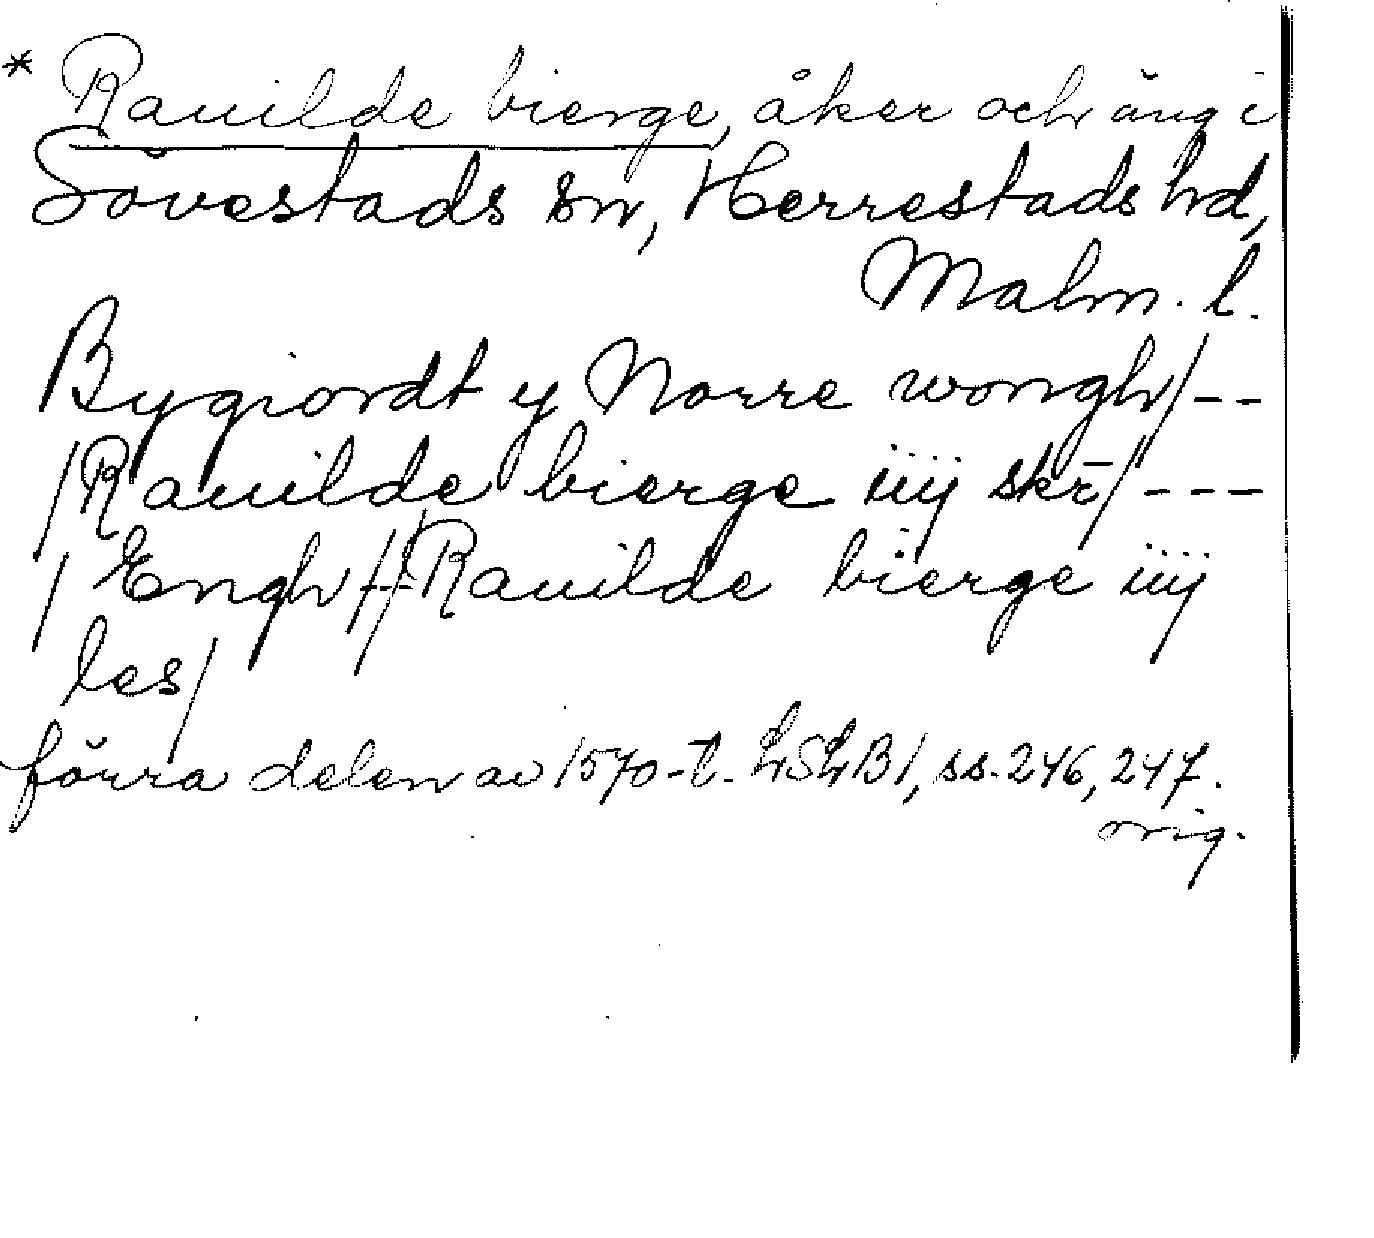 * Rauilde bierge, åker och äng i
Sövestads sn, Herrestads hd,
Malm. l.
Bygiordt y Norre wongh/--
/Rauilde bierge iiij skr̄/---
/Engh/--/Rauilde bierge iiij
les/
förra delen av 1570-t. LSLB1, ss. 246, 247.
orig.